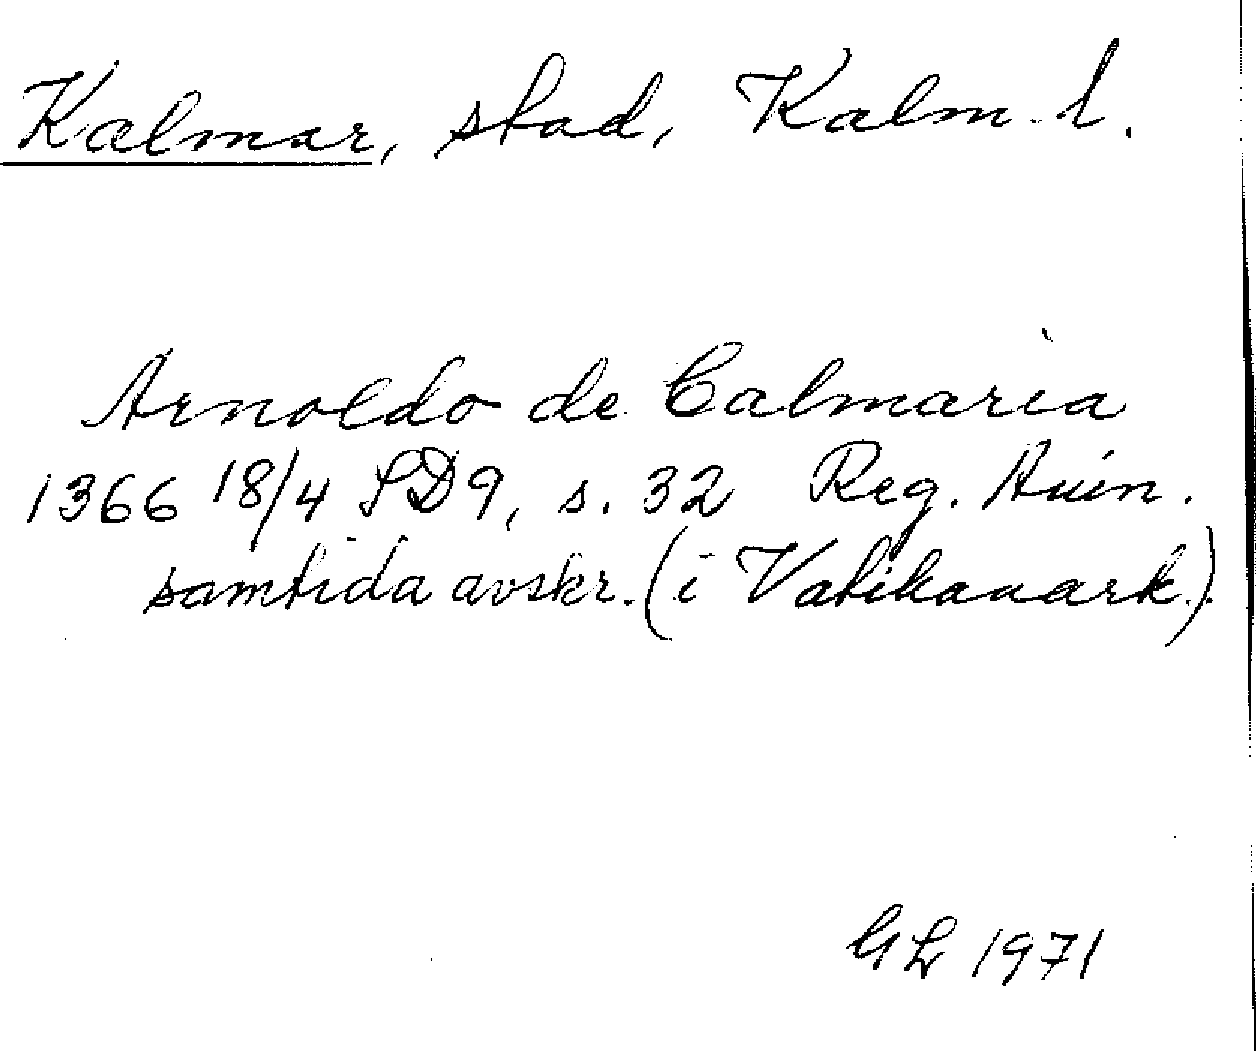 Kalmar, stad, Kalm. l.
Arnoldo de Calmaria
1366 18/4 SD9, s. 32 Reg. Avin.
samtida avskr. (i Vatikanark.)
GL 1971